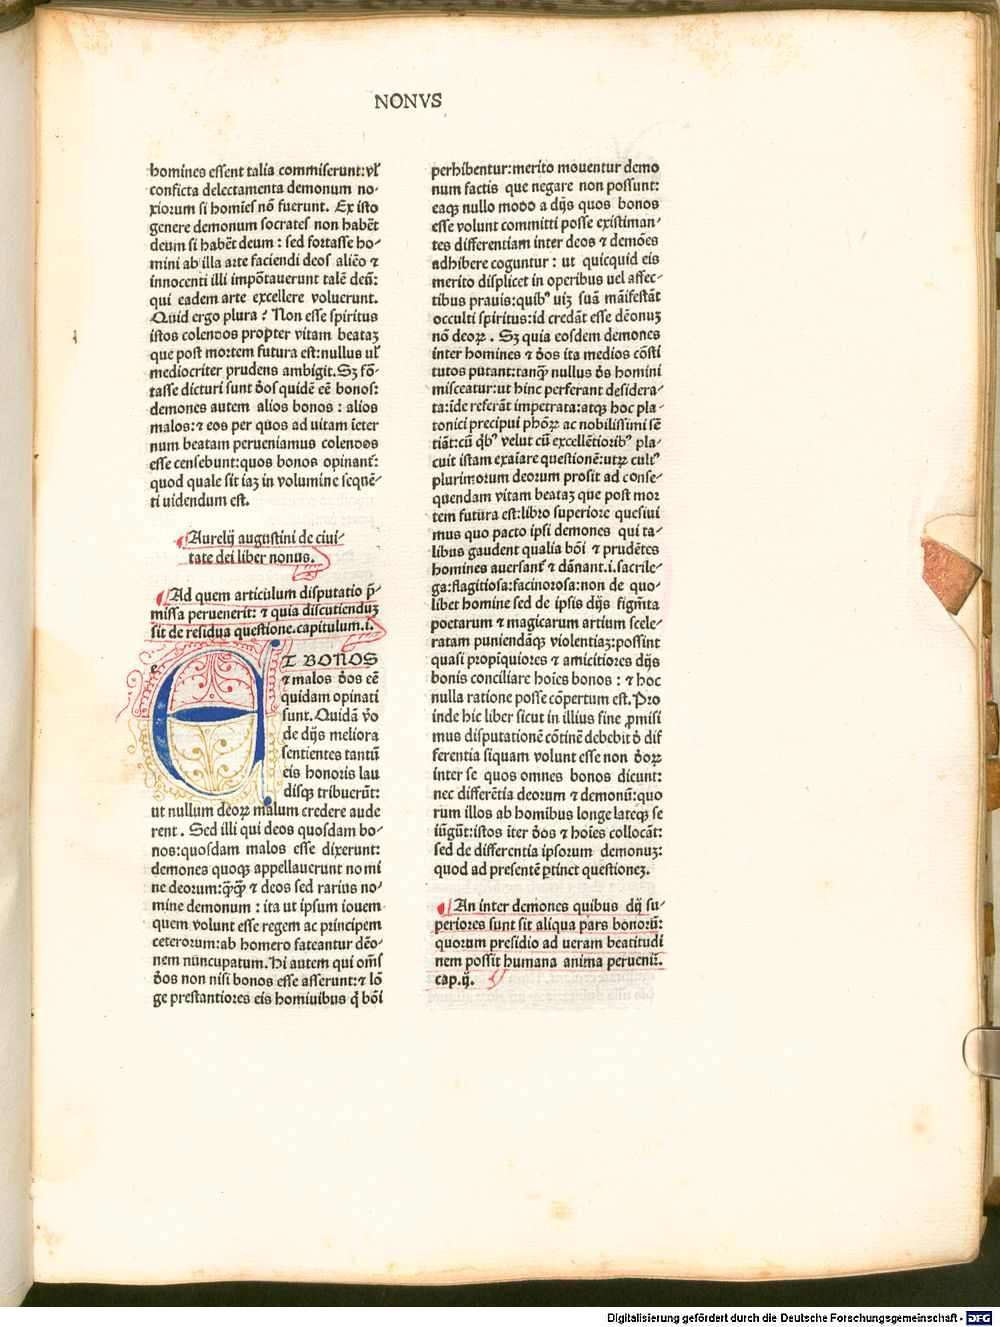 NONVS
homines essent talia commiserunt: vl᷒
conficta delectamenta demonum no-
xiorum si homīes nō fuerunt. Ex isto
genere demonum socrates non habēt
deum si habēt deum : sed fortasse ho-
mini ab illa arte faciendi deos aliēo ⁊
innocenti illi impōtauerunt talē deū:
qui eadem arte excellere voluerunt.
Quid ergo plura ? Non esse spiritus
istos colendos propter vitam beataꝫ
que post mortem futura est: nullus ul᷒
mediocriter prudens ambigit. Sꝫ fō-
tasse dicturi sunt d̄os quidē eē bonos:
demones autem alios bonos : alios
malos: ⁊ eos per quos ad uitam īeter
num beatam perueniamus colendos
esse censebunt: quos bonos opinant᷒:
quod quale sit iaꝫ in volumine sequē-
ti uidendum est.
Aurelij augustini de ciui-
tate dei liber nonus.
Ad quem articulum disputatio p̄-
missa peruenerit: ⁊ quia discutienduꝫ
sit de residua questione. capitulum .i.
e
ET BONOS
⁊ malos d̄os eē
quidam opinati
sunt. Quidā v̊o
de dijs meliora
sentientes tantū
eis honoris lau
disqꝫ tribuerūt:
ut nullum deoꝝ malum credere aude
rent . Sed illi qui deos quosdam bo-
nos: quosdam malos esse dixerunt:
demones quoqꝫ appellauerunt nomi
ne deorum: q̄qꝫ̄ ⁊ deos sed rarius no-
mine demonum : ita ut ipsum iouem
quem volunt esse regem ac principem
ceterorum: ab homero fateantur dēo-
nem nuncupatum. Hi autem qui om̄s
d̄os non nisi bonos esse asserunt: ⁊ lō
ge prestantiores eis hominibus q̇ bōi
perhibentur: merito mouentur demo
num factis que negare non possunt:
eaqꝫ nullo modo a dijs quos bonos
esse volunt committi posse existiman-
tes differentiam inter deos ⁊ demōes
adhibere coguntur : ut quicquid eis
merito displicet in operibus uel affec-
tibus prauis: quibꝰ uiꝫ suā māifestāt
occulti spiritus: id credāt esse dēonuꝫ
nō deoꝝ . Sꝫ quia eosdem demones
inter homines ⁊ d̄os ita medios cōsti
tutos putant: tanqꝫ̄ nullus d̄s homini
misceatur: ut hinc perferant desidera-
ta: īde referāt impetrata: atqꝫ hoc pla-
tonici precipui ph̄oꝝ ac nobilissimi sē
tiāt: cū q̇bꝰ velut cū excellētioribꝰ pla-
cuit istam exaīare questionē: utꝝ cultꝰ
plurimorum deorum prosit ad conse-
quendam vitam beataꝫ que post mor
tem futura est: libro superiore quesiui
mus quo pacto ipsi demones qui ta-
libus gaudent qualia bōi ⁊ prudētes
homines auersant᷒ ⁊ dānant .i. sacrile-
ga: flagitiosa: facinorosa: non de quo-
libet homine sed de ipsis dijs figm̄ta
poetarum ⁊ magicarum artium scele-
ratam puniendāqꝫ violentiaꝫ: possint
quasi propiquiores ⁊ amicitiores dijs
bonis conciliare hoīes bonos : ⁊ hoc
nulla ratione posse cōpertum est. Pro
inde hic liber sicut in illius fine ꝓmisi
mus disputationē cōtinē debebit d̄ dif
ferentia siquam volunt esse non d̄oꝝ
inter se quos omnes bonos dicunt:
nec differētia deorum ⁊ demonū: quo
rum illos ab homībus longe lateqꝫ se
iūgūt: istos īter d̄os ⁊ hoīes collocāt:
sed de differentia ipsorum demonuꝫ:
quod ad presentē ꝑtinet questioneꝫ.
An inter demones quibus dij su-
periores sunt sit aliqua pars bonorū:
quorum presidio ad ueram beatitudi
nem possit humana anima peruenir̄.
cap .ij.
Digitalisierung gefördert durch die Deutsche Forschungsgemeinschaft - DFG